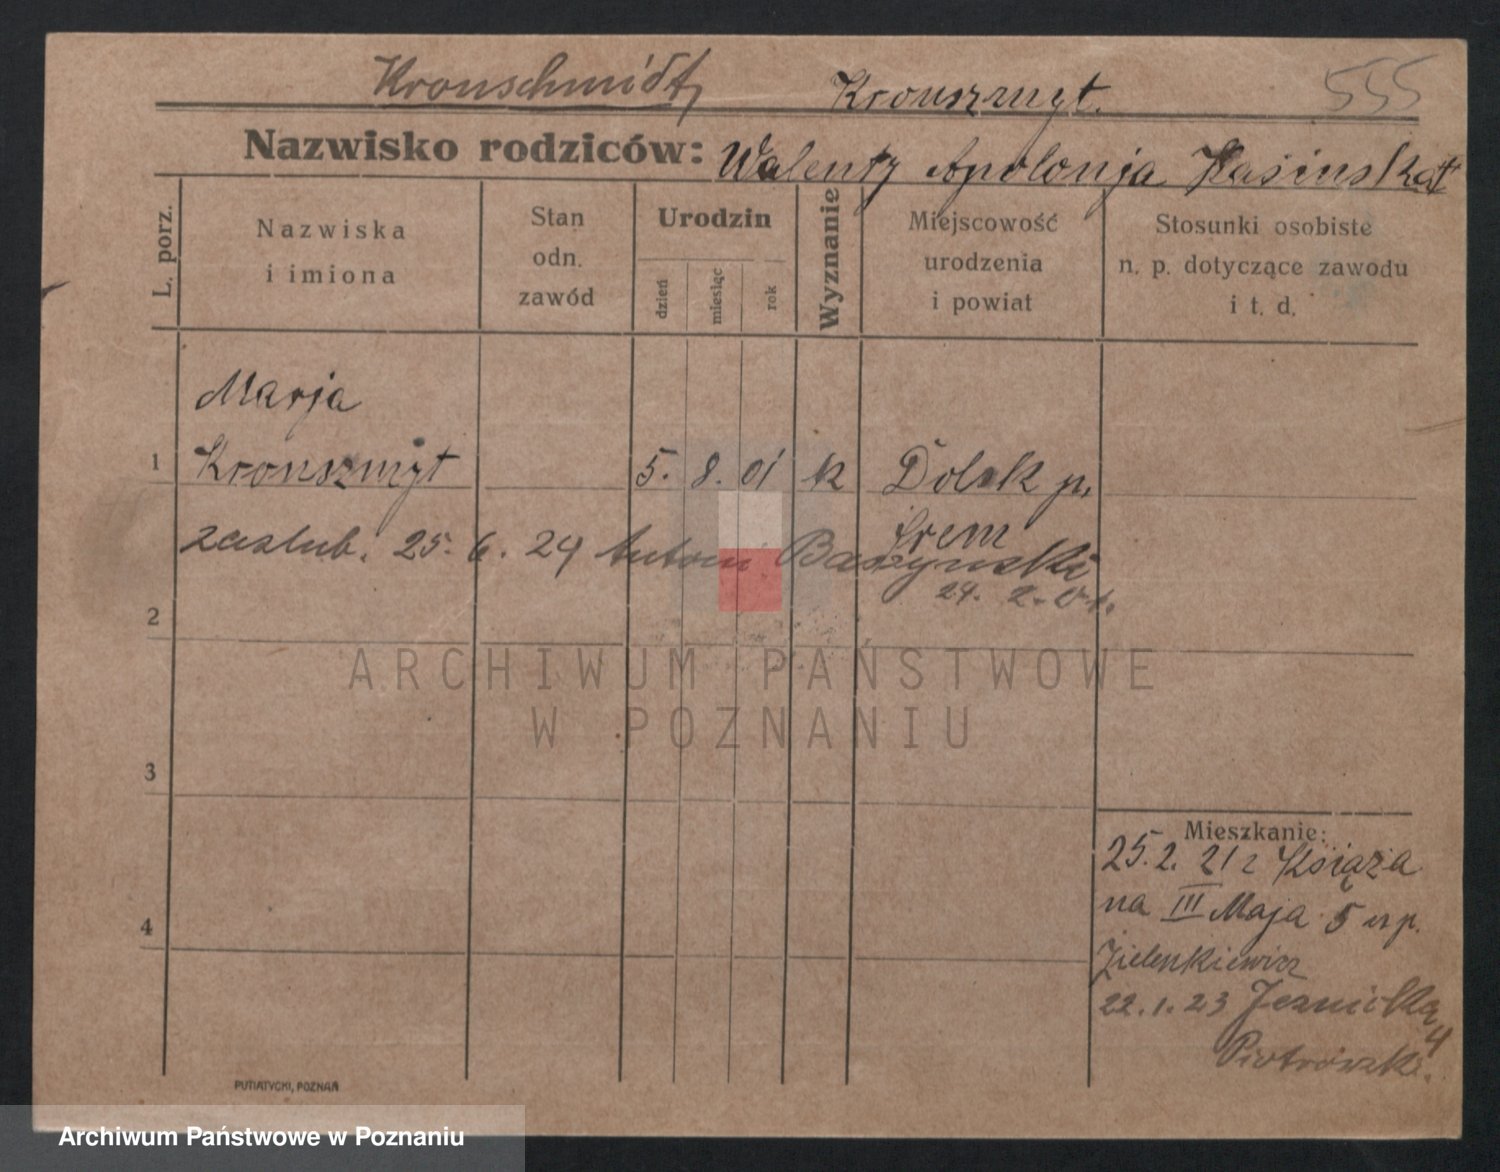 Kronschmidt, Kronszmyt. 555
Nazwisko rodziców: Walenty Apolonja Kasińska
L. porz.
Nazwiska
i imiona
Stan
odn.
zawód
Urodzin
dzień
miesiąc
rok
Wyznanie
Miejscowość
urodzenia
i powiat
Stosunki osobiste
n. p. dotyczące zawodu
i t. d.
Marja
1 Kronszmyt 5. 8. 01 k Dolsk p.
Śrem
zaslub. 25. 6. 24 Antoni Baszynski
24. 2. 01.
2
ARCHIWUM PAŃSTWOWE
W POZNANIU
3
Mieszkanie:
25.2. 21 z Książa
na III Maja 5 up.
4
Zielenkiewicz
22.1.23 4
Piotrowski.
PUTIATYCKI, POZNAŃ
Archiwum Państwowe w Poznaniu